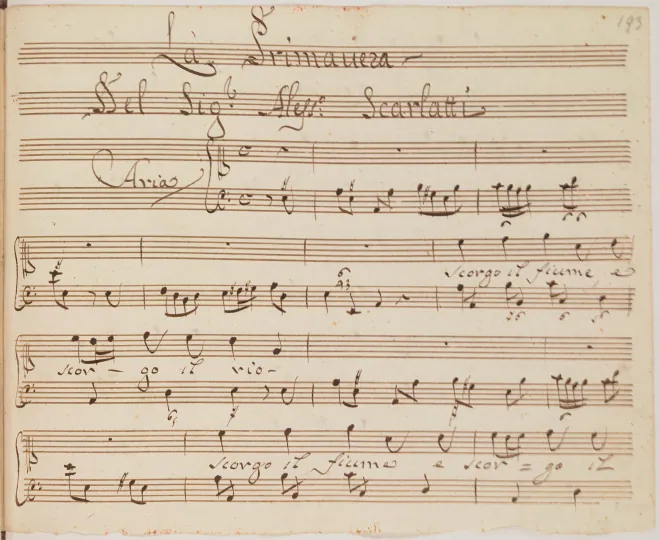 193
La Primauera
Del Sig.r Aless.o Scarlatti
Aria
scorgo il fiume, e
scor - go il rio -
scorgo il fiume e scor = go il